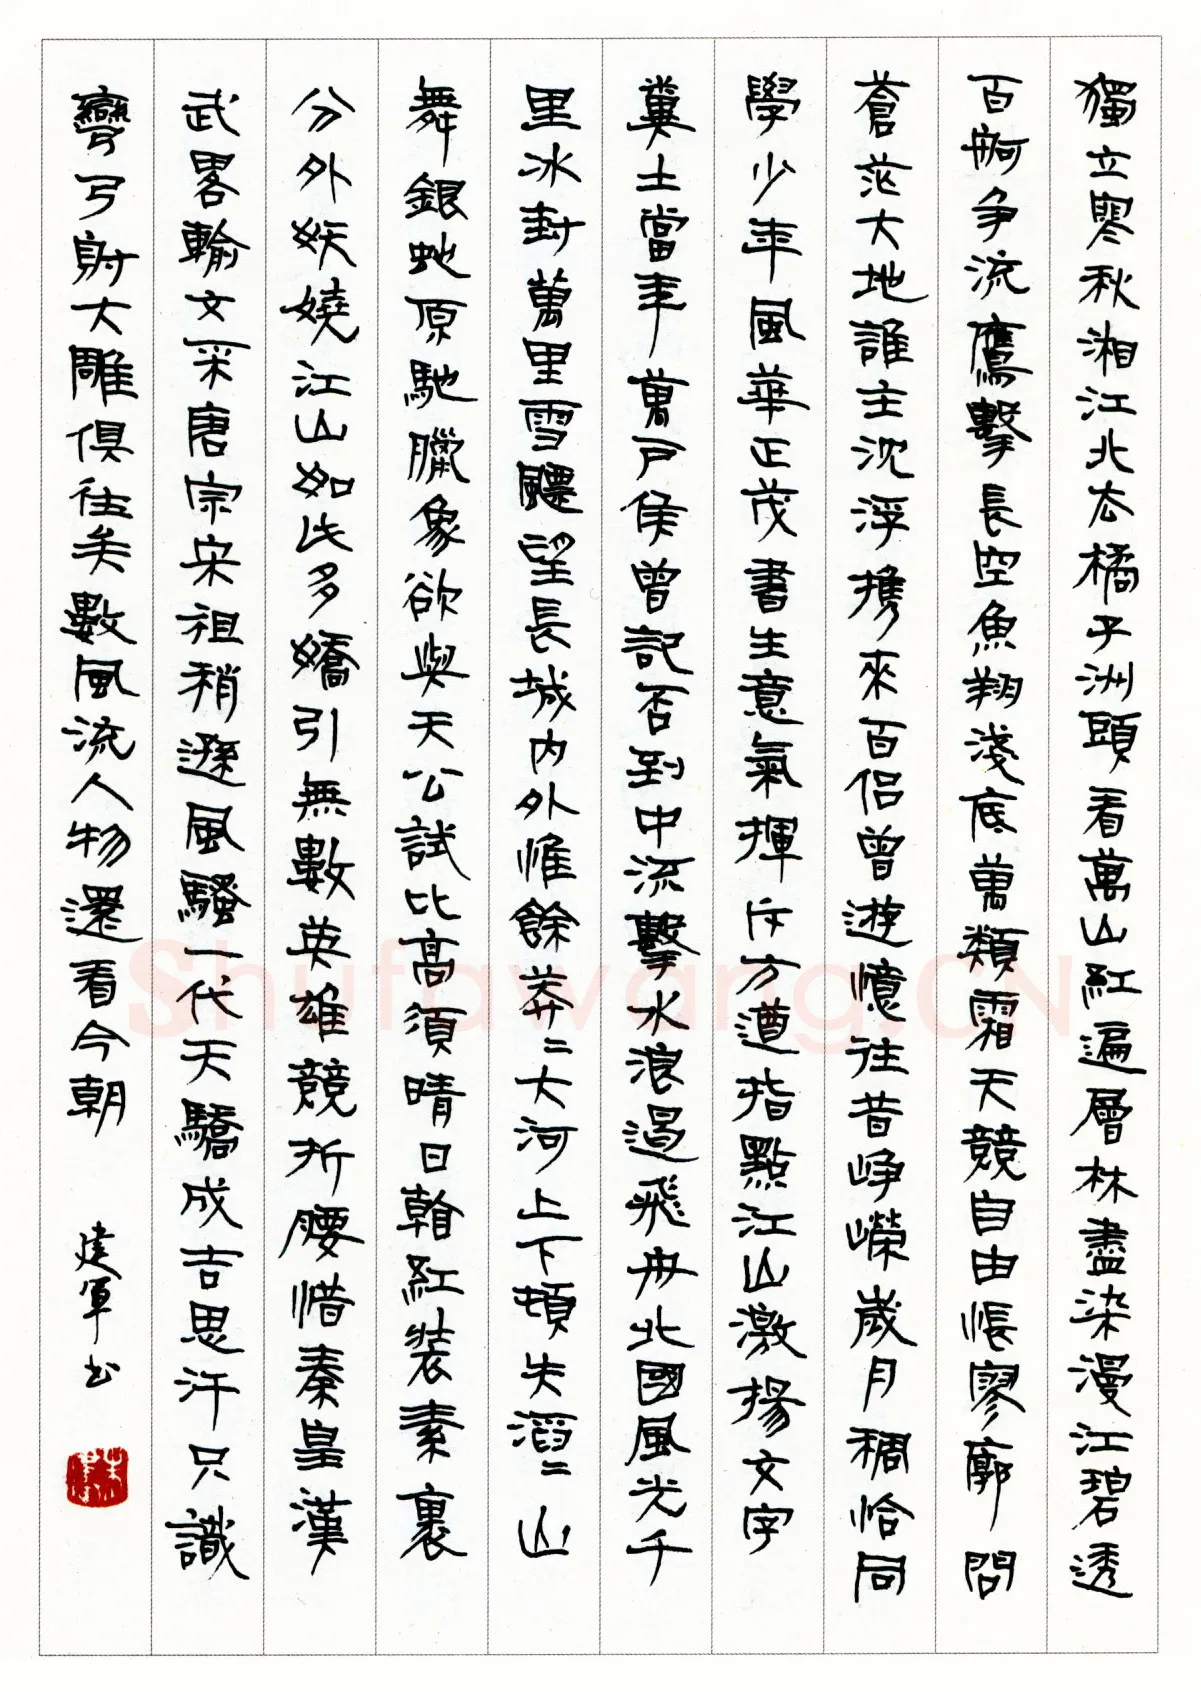 獨立寒秋湘江北去橘子洲頭看萬山紅遍層林盡染漫江碧透
百舸争流鷹擊長空魚翔淺底萬類霜天競自由悵寥廓問
蒼茫大地誰主沈浮携來百侣曾遊憶往昔崢嶸歲月稠恰同
學少年風華正茂書生意氣揮斥方遒指點江山激揚文字
糞土當年萬戶侯曾記否到中流擊水浪遏飛舟北國風光千
里冰封萬里雪飄望長城内外惟餘莽〻大河上下頓失滔〻山
舞銀蛇原馳臘象欲與天公試比高須晴日看紅裝素裹
分外妖嬈江山如此多嬌引無數英雄競折腰惜秦皇漢
武畧輸文采唐宗宋祖稍遜風騷一代天驕成吉思汗只識
彎弓射大雕俱往矣數風流人物還看今朝
建軍书
Shufawang.CN